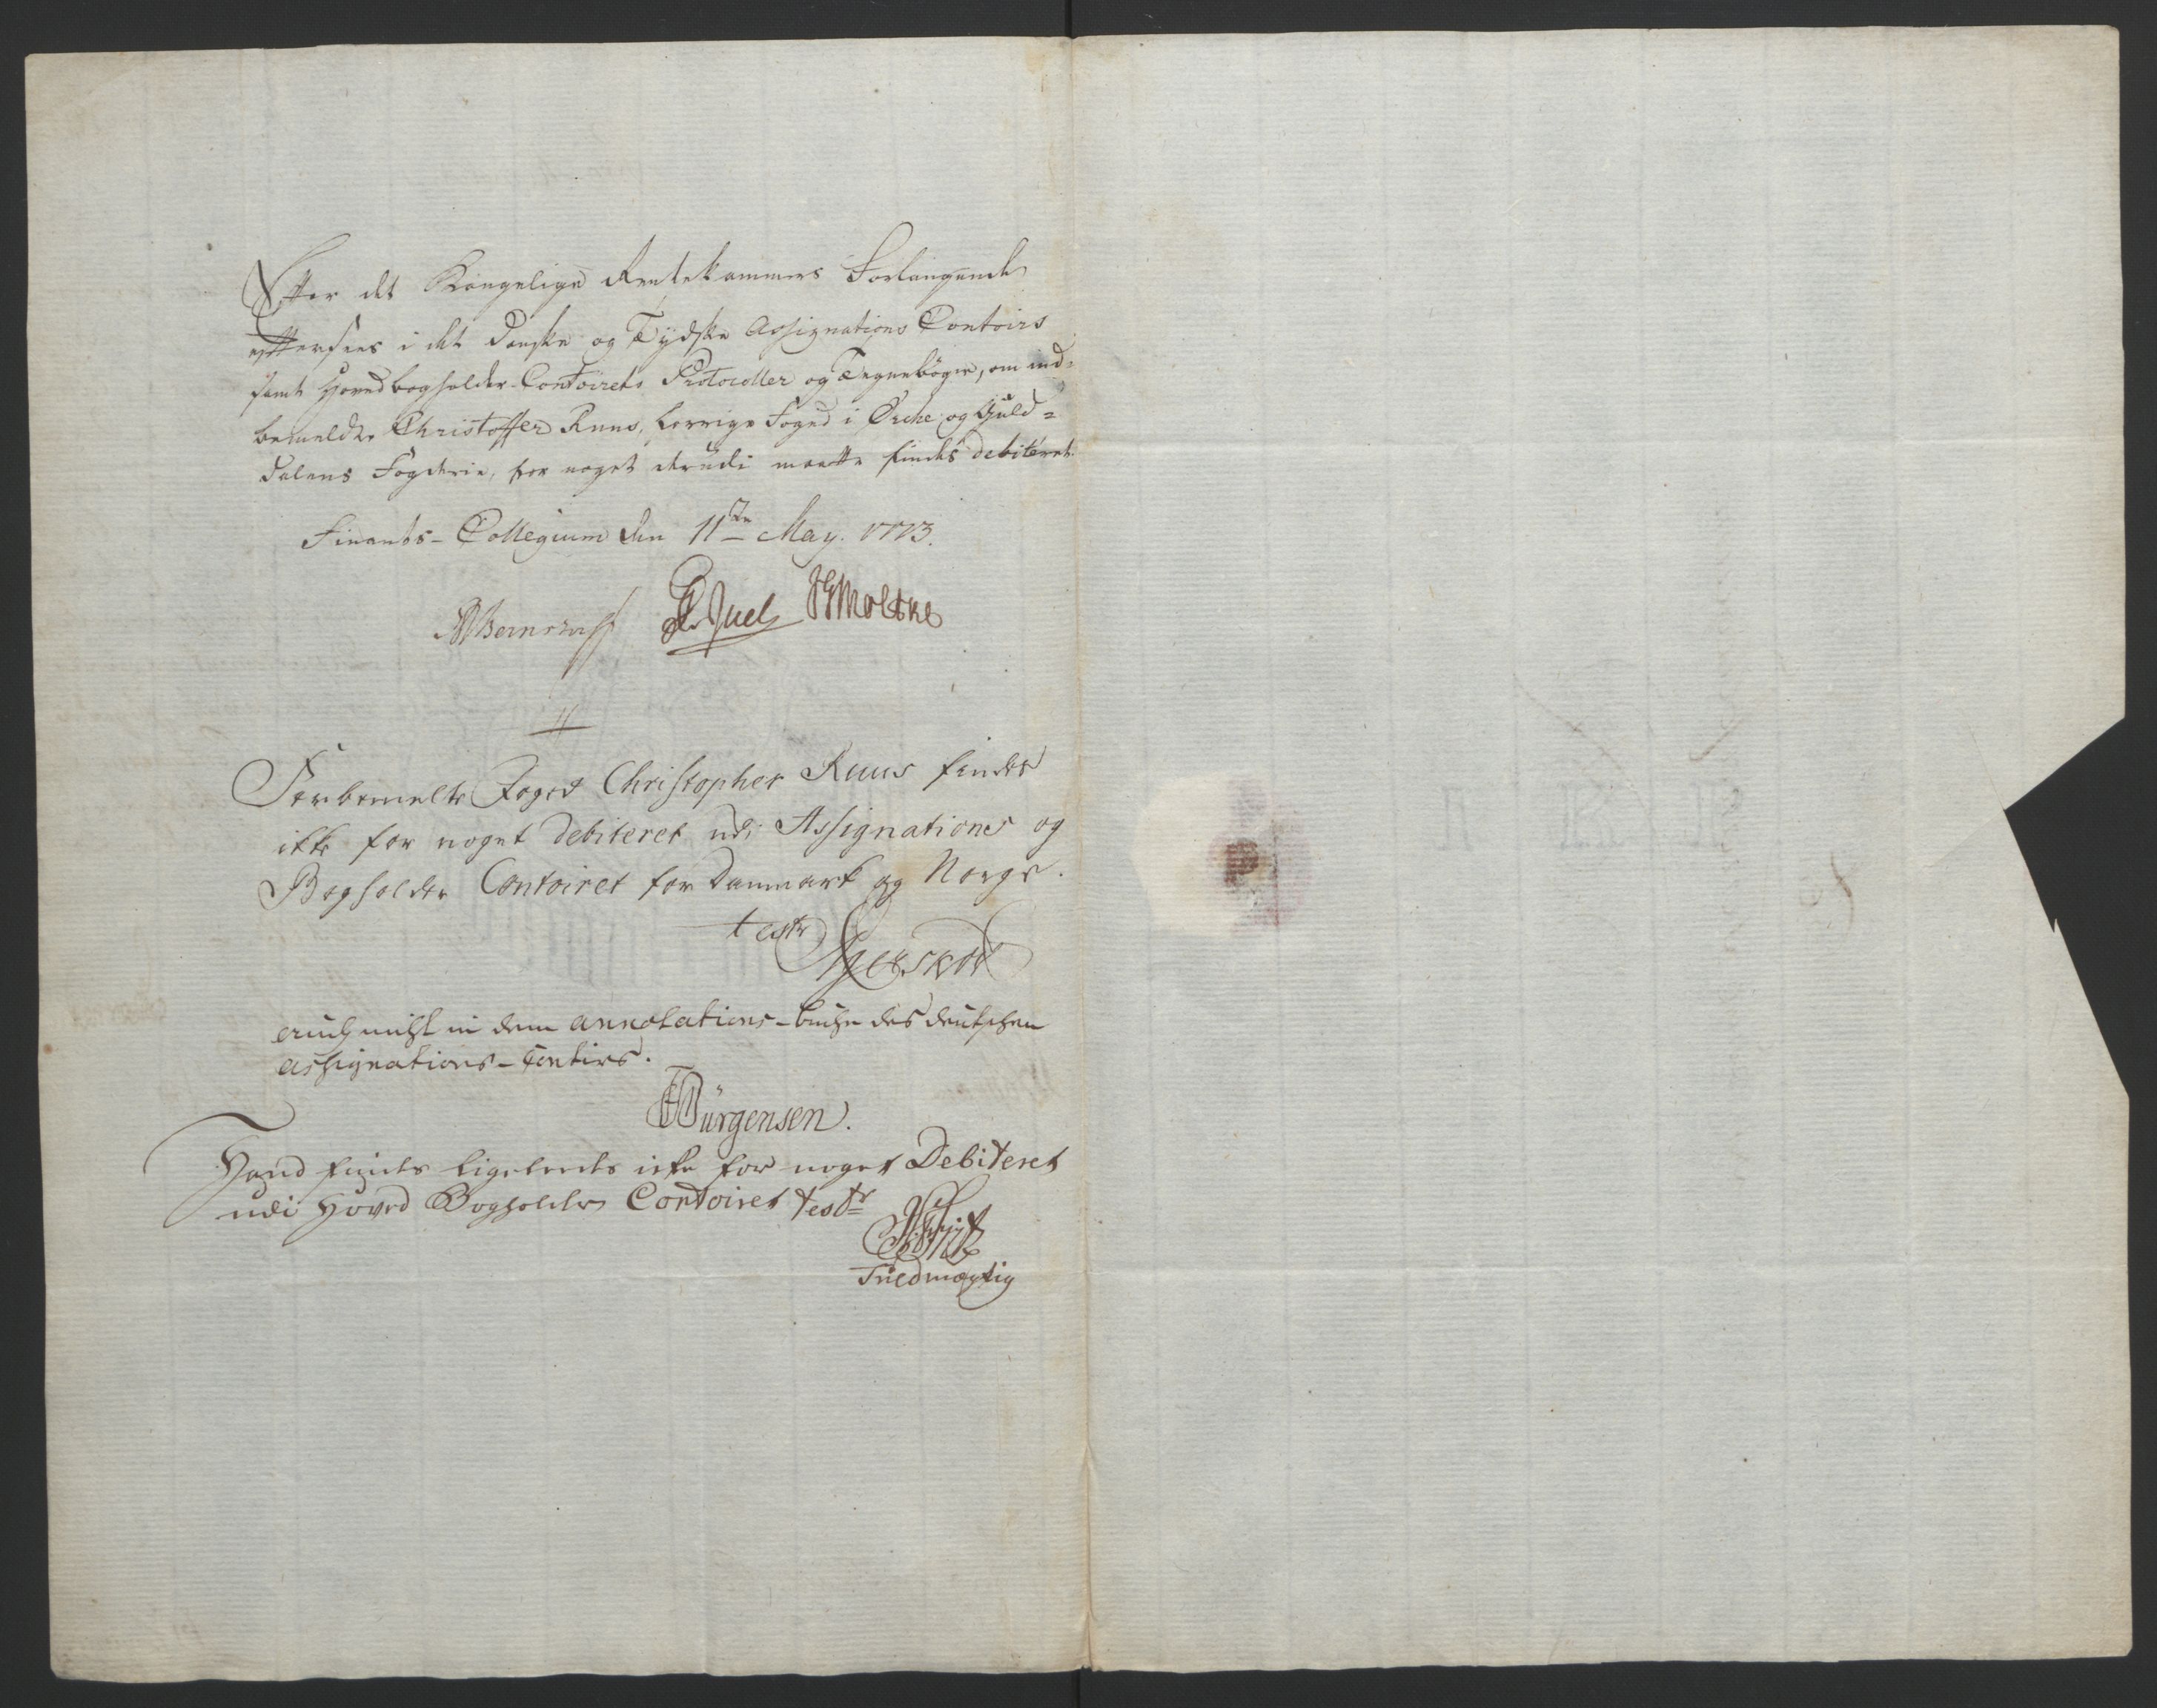 Efter det Kongelige Rentekammers Forlangende
efftersees i det Danske og Tydske Assignations Contoirs
samt Hovedbogholder-Contoirets Protocoller og Tegnebøger, om ind-
bemeldte Christoffer Ruus, forrige Foged i Orche og Guld=
dalens Fogderie, for noget derudi maatte findes debiteret.
Finants-Collegium den 11te May. 1773.
Bernstorff Juel Moltke
Forbemelte Foged Christopher Ruus findes
ikke for noget debiteret udi Assignations og
Bogholder Contoiret for Danmark og Norge.
teste
auch nicht in dem annotations-buche des deutschen
assignations-Contirs.
Würgensen.
Hand findes ligeledes icke for noget Debiteret
udi Hoved Bogholder Contoiret test
Fuldmægtig